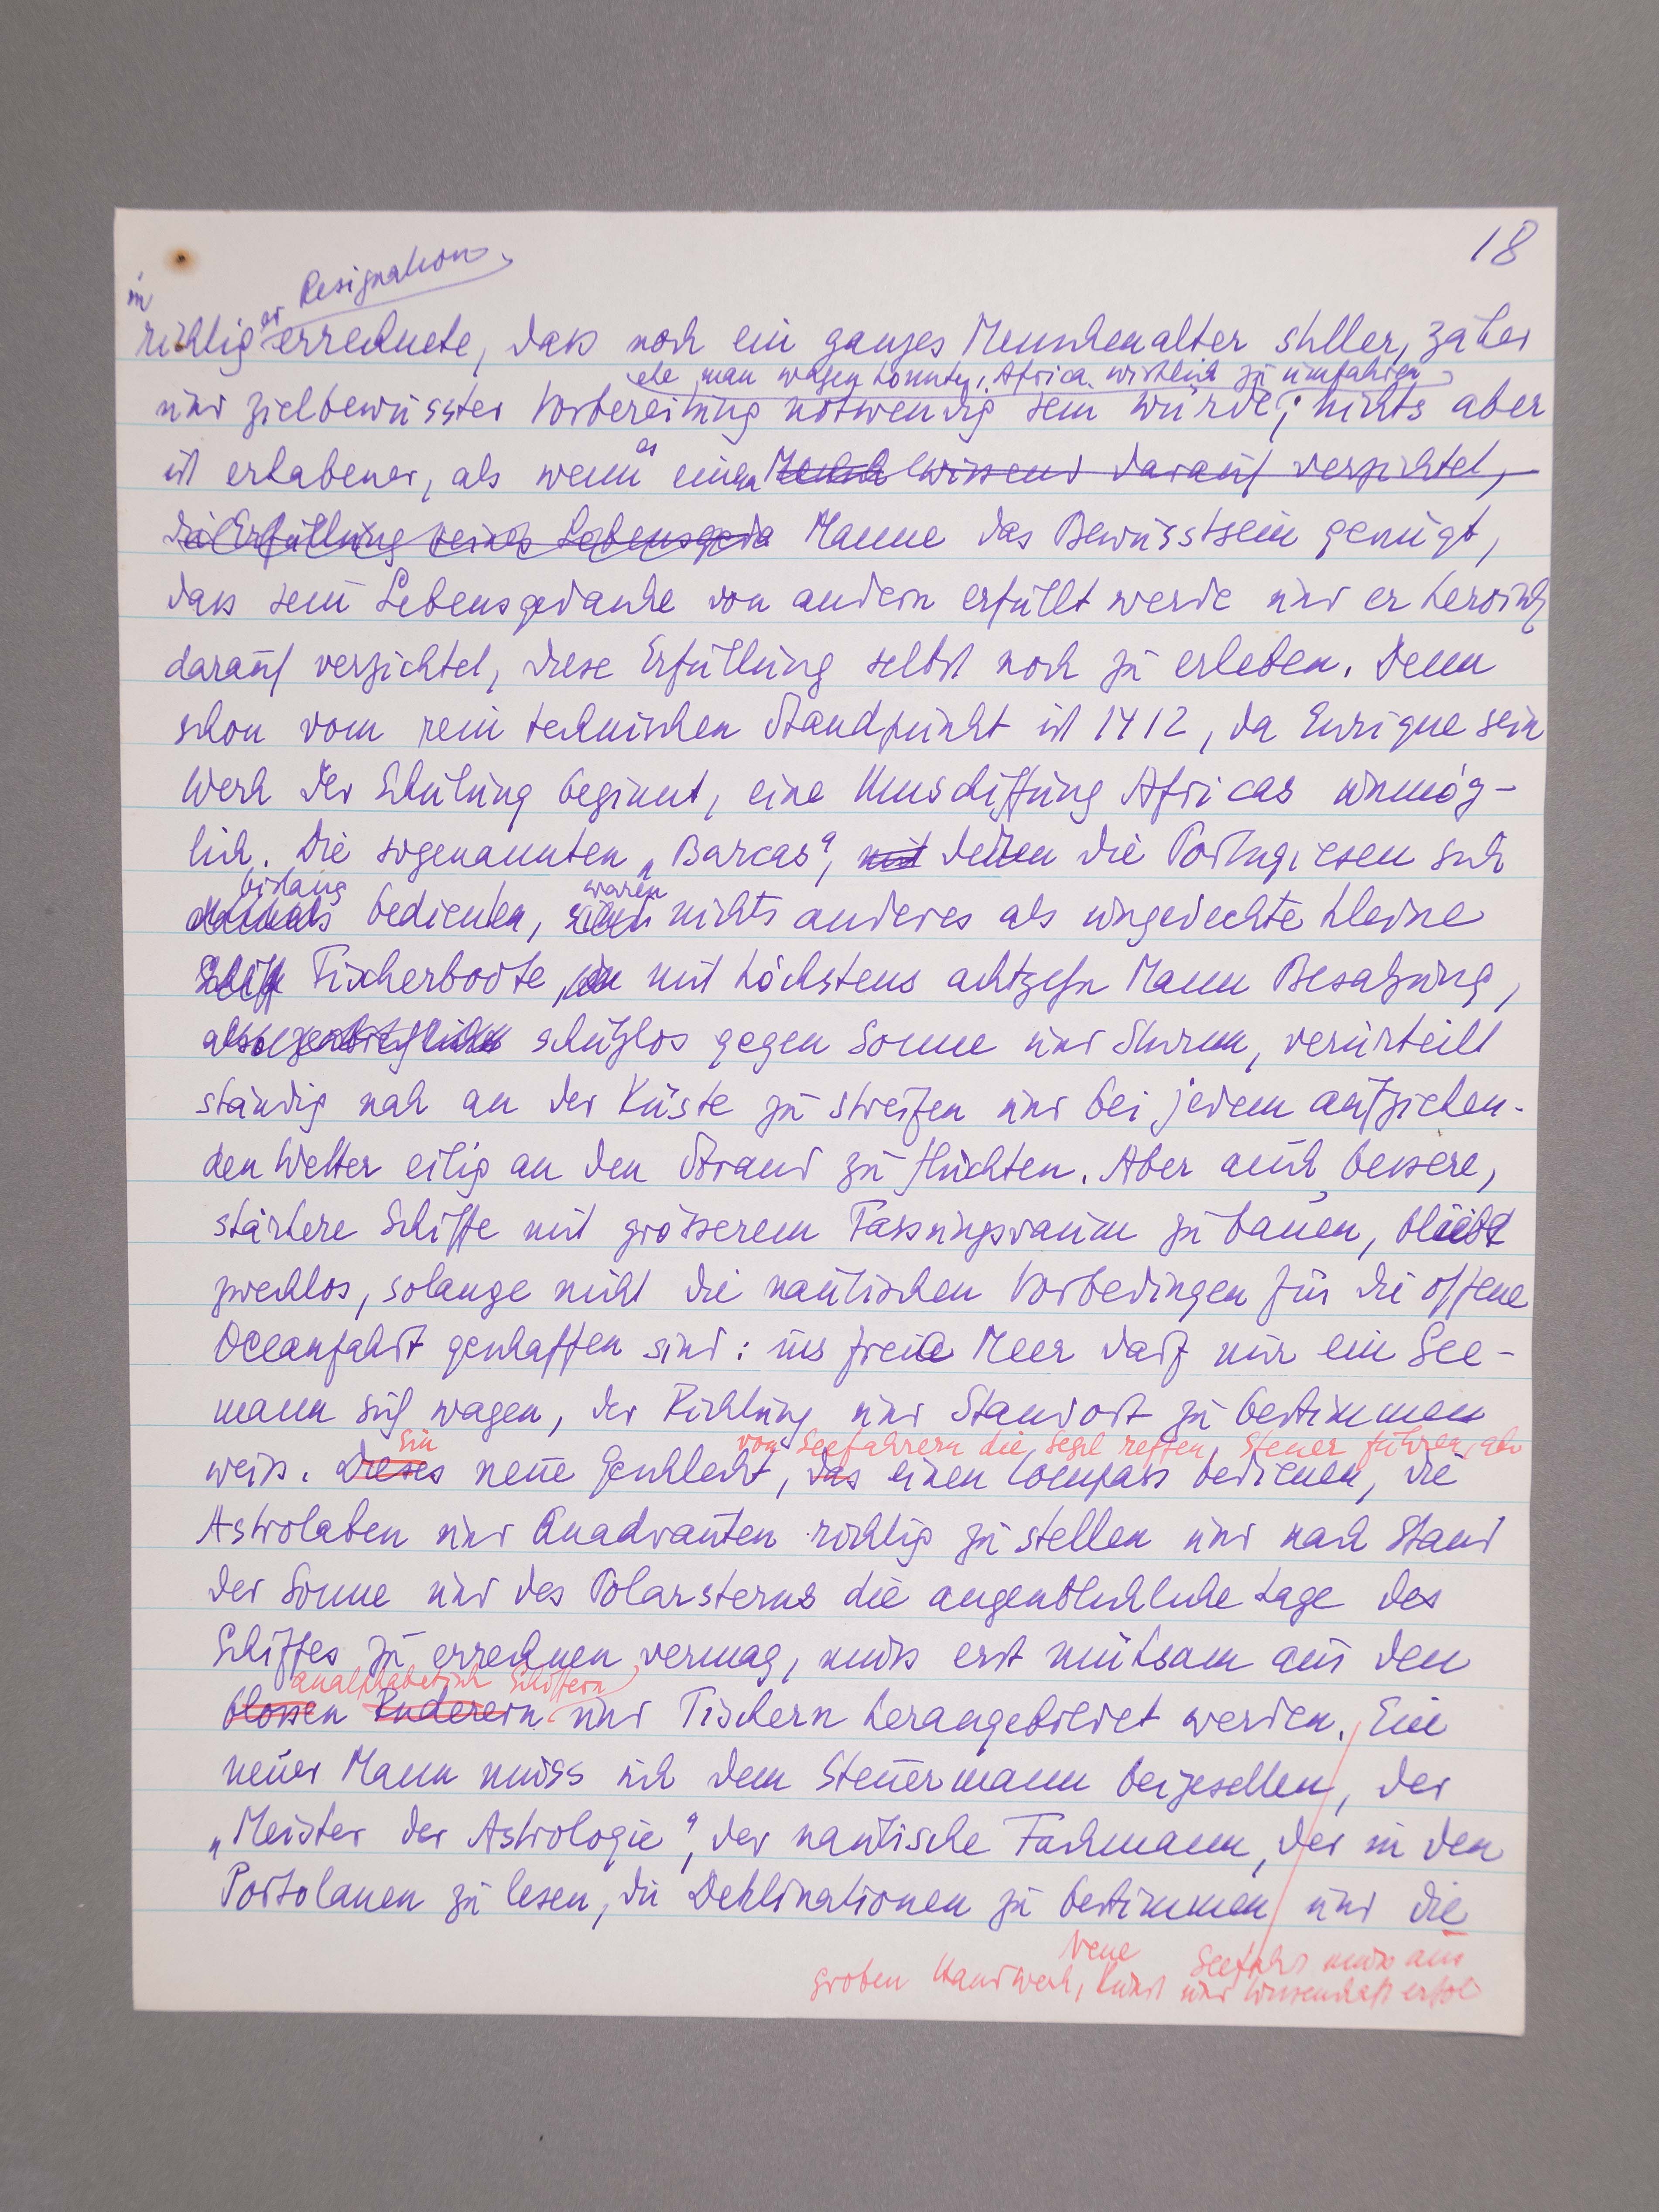 18
in
er Resignation,
richtig errechnete, dass noch ein ganzes Menschenalter stiller, zäher
ehe man wagen konnte, Africa wirklich zu umfahren
und zielbewusster Vorbereitung notwendig sein würde; nichts aber
es
ist erhabener, als wenn einem Mensch wissend darauf verzichtet,
die Erfüllung seines Lebensgeda Manne das Bewusstsein genügt,
dass sein Lebensgedanke von andern erfüllt werde und er heroisch
darauf verzichtet, diese Erfüllung selbst noch zu erleben. Denn
schon vom rein technischen Standpunkt ist 1412, da Enrique sein
Werk der Schulung beginnt, eine Umschiffung Africas unmög-
lich. Die sogenannten „Barcas“, mit denen die Portugiesen sich
bislang waren
damals bedienten, sind nichts anderes als ungedeckte kleine
Schiff Fischerboote, mit höchstens achtzehn Mann Besatzung,
schutzlos gegen Sonne und Sturm, verurteilt
ständig nah an der Küste zu streifen und bei jedem aufziehen-
den Wetter eilig an den Strand zu flüchten. Aber auch bessere,
stärkere Schiffe mit grösserem Fassungsraum zu bauen, bleibt
zwecklos, solange nicht die nautischen Vorbedingen für die offene
Oceanfahrt geschaffen sind: ins freie Meer darf nur ein See-
mann sich wagen, der Richtung und Standort zu bestimmen
Ein von Seefahrern die Segel reffen, Steuer führen, aber
weiss. Dieses neue Geschlecht, das einen Compass bedienen, die
Astrolaben und Quadranten richtig zu stellen und nach Stand
der Sonne und des Polarsterns die augenblickliche Lage des
Schiffes zu errechnen vermag, muss erst mühsam aus den
analphabetisch Schiffern
blossen Ruderern und Fischern herangebildet werden. Ein
neuer Mann muss sich dem Steuermann beigesellen, der
„Meister der Astrologie“, der nautische Fachmann, der in den
Portolanen zu lesen, die Deklinationen zu bestimmen und die
Neue Seefahrt muss aus
groben Handwerk, Kunst und Wissenschaft